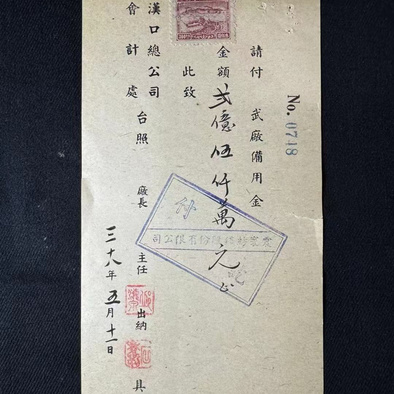 No. 0718
請付 武廠備用金
金額 弍億伍仟萬元
此致
漢口總公司
會計處 台照
廠長 主任 出納 具
三十八年五月十一日
付
份有限公司
訖